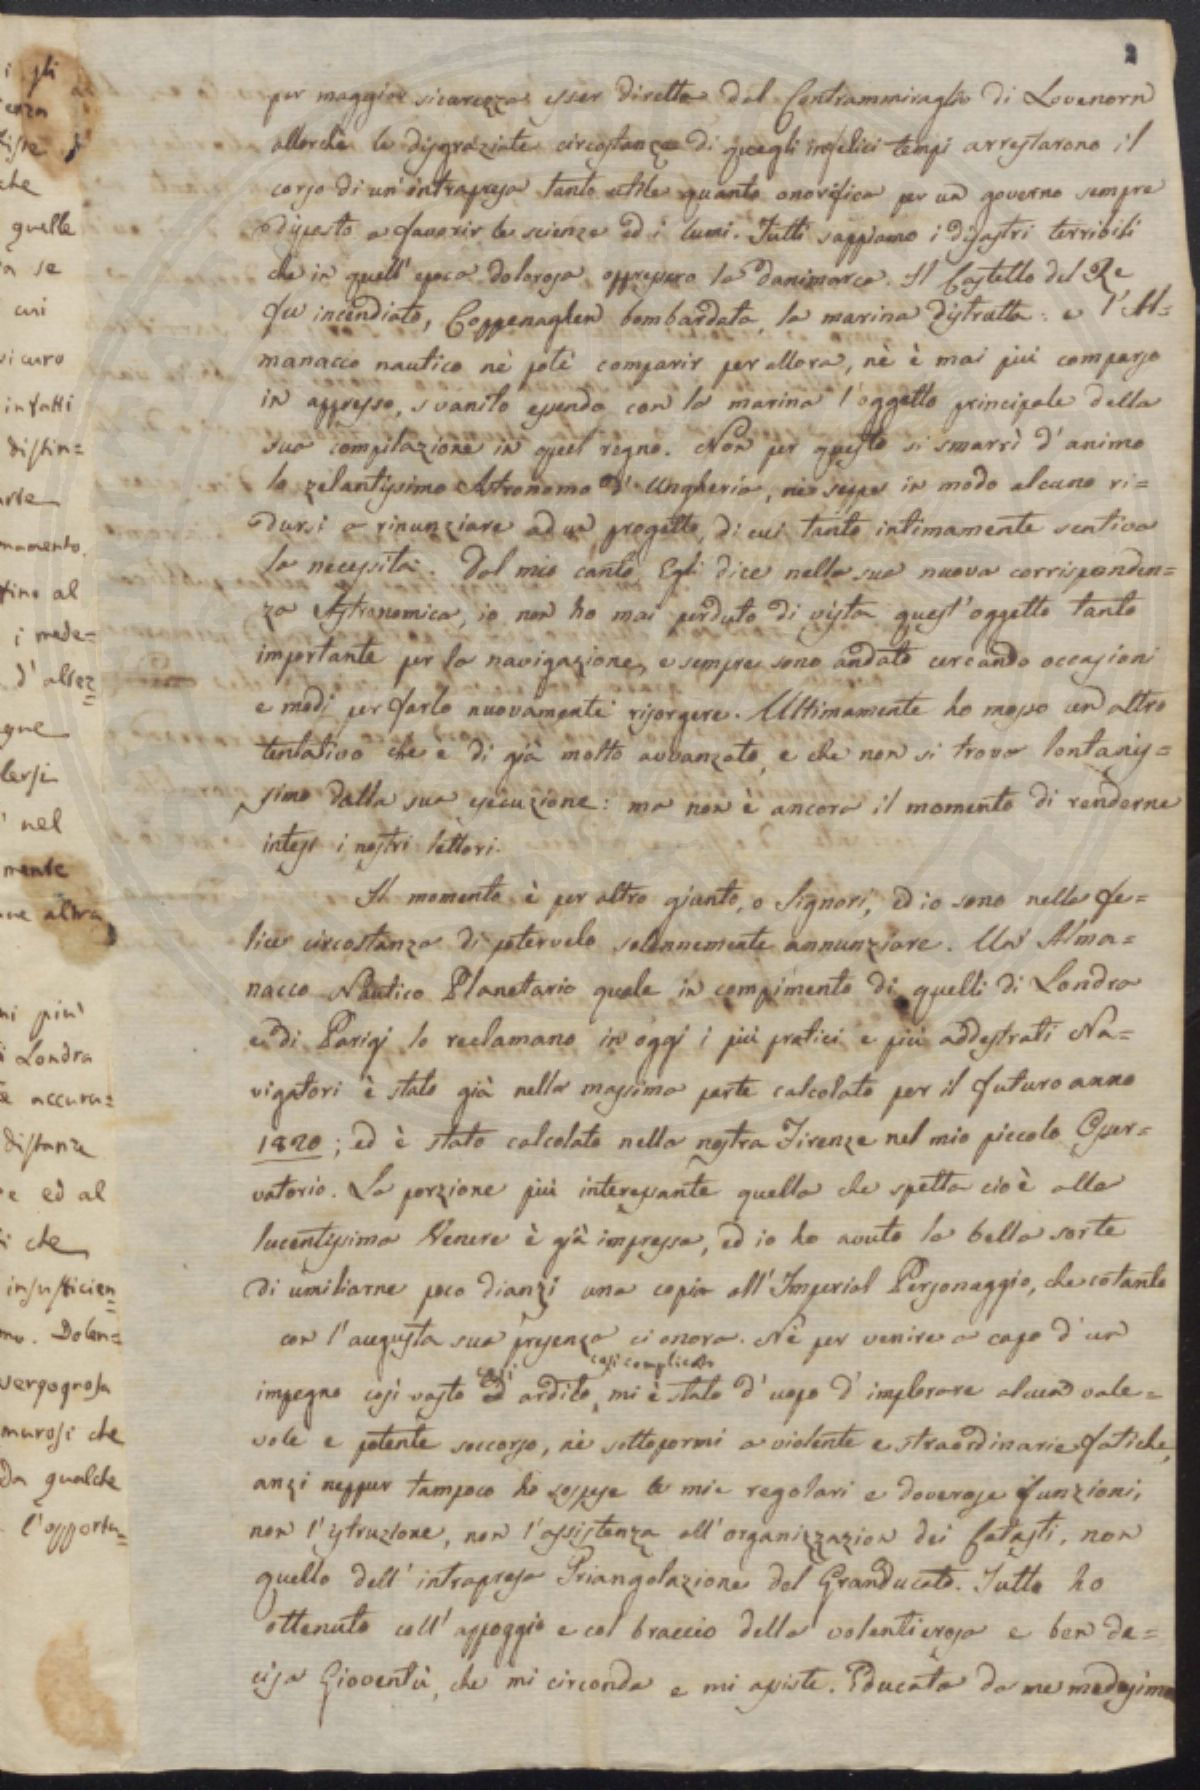 2
per maggior sicurezza esser diretto dal Contrammiraglio di Lovenorn
allorchè le disgraziate circostanze di quegli infelici tempi arrestarono il
corso di un' intrapresa tanto utile quanto onorifica per un governo sempre
disposto a favorir le scienze ed i lumi. Tutti sappiamo i disastri terribili
che in quell' epoca dolorosa oppressero la Danimarca. Il Castello del Re
fu incendiato, Coppenaghen bombardata, la marina distrutta: e l' Al=
manacco nautico nè potè comparir per allora, nè è mai più comparso
in appresso, svanito essendo con la marina l' oggetto principale della
sua compilazione in quel regno. Non per questo si smarrì d' animo
lo zelantissimo Astronomo d' Ungheria, nè seppe in modo alcuno ri=
dursi a rinunziare ad un progetto, di cui tanto intimamente sentiva
la necessità. Dal mio canto, Egli dice nella sua nuova corrisponden=
za Astronomica, io non ho mai perduto di vista quest' oggetto tanto
importante per la navigazione, e sempre sono andato cercando occasioni
e modi per farlo nuovamente risorgere. Ultimamente ho mosso un altro
tentativo che è di già molto avvanzato, e che non si trova lontanis=
simo dalla sua esecuzione: ma non è ancora il momento di renderne
intesi i nostri lettori.
Il momento è per altro giunto, o Signori, ed io sono nella fe=
lice circostanza di potervelo solennemente annunziare. Un' Alma=
nacco Nautico Planetario quale in compimento di quelli di Londra
e di Parigi lo reclamano in oggi i più pratici e più addestrati Na=
vigatori è stato già nella massima parte calcolato per il futuro anno
1820; ed è stato calcolato nella nostra Firenze nel mio piccolo Osser=
vatorio. La porzione più interessante quella che spetta cioè alla
lucentissima Venere è già impressa, ed io ho avuto la bella sorte
di umiliarne poco dianzi una copia all' Imperial Personaggio, che cotanto
con l' augusta sua presenza ci onora. Nè per venire a capo d' un
così così complicato
impegno così vasto ed ardito, mi è stato d' uopo d' implorare alcun vale=
vole e potente soccorso, nè sottopormi a violente e straordinarie fatiche,
anzi neppur tampoco ho sospese le mie regolari e doverose funzioni,
non l' istruzione, non l' assistenza all' organizzazion dei Catasti, non
quella dell' intrapresa Triangolazione del Granducato. Tutto ho
ottenuto coll' appoggio e col braccio della volenterosa e ben de=
cisa Gioventù, che mi circonda e mi assiste. Educata da me medesimo
i gli
che
quelle
a se
cui
sicuro
infatti
distin=
namento.
fino al
i mede=
d' altez=
que
lersi
nel
mente
altra
più
Londra
accura=
distanze
e ed al
che
insufficien=
Dolen=
vergognosa
murosi che
da qualche
l' opportu=